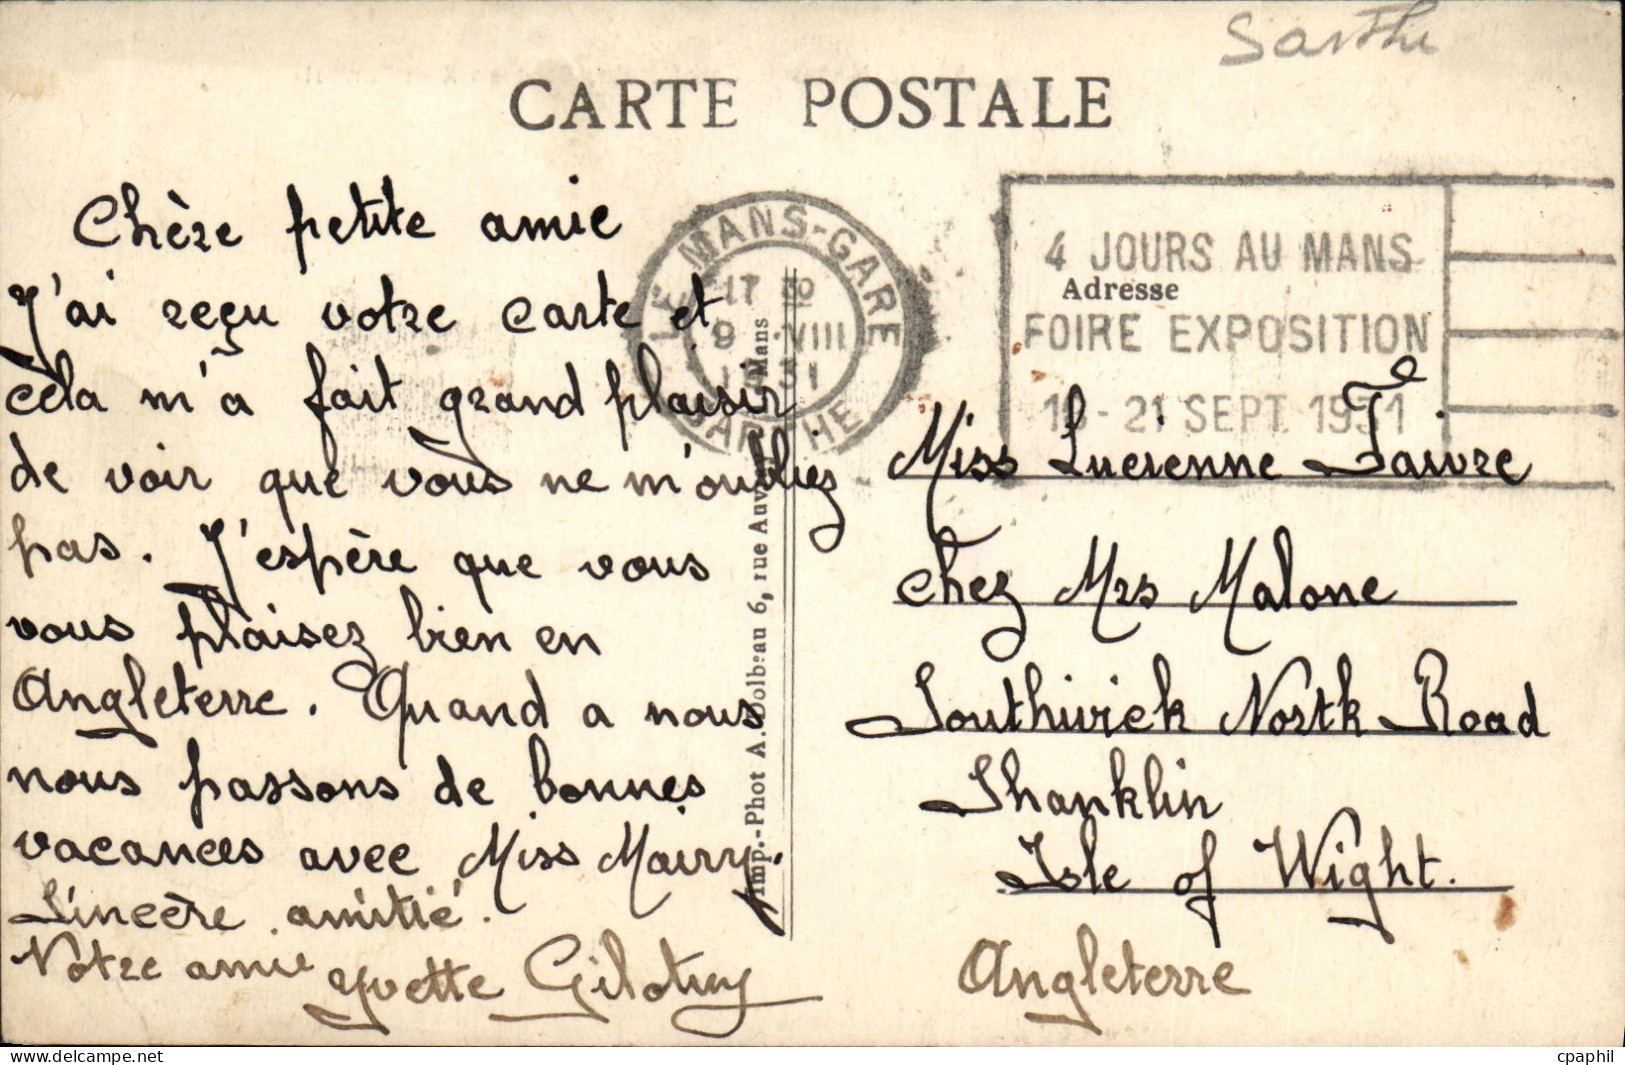 Sarthe
CARTE POSTALE
Chère petite amie
J'ai reçu votre carte et
cela m'a fait grand plaisir
de voir que vous ne m'oubliez
pas. J'espère que vous
vous plaisez bien en
Angleterre. Quand a nous
nous passons de bonnes
vacances avec Miss Mairy.
Sincère amitié.
Votre amie Yvette
LE MANS-GARE
17 30
9 VIII
31
SARTHE
Imp.-Phot A. Dolbeau 6, rue Auvray Mans
4 JOURS AU MANS
Adresse
FOIRE EXPOSITION
- 21 SEPT. 1931
Miss Lucienne Faivre
chez Mrs Malone
Southwick North Road
Shanklin
Isle of Wight.
Angleterre
cpa-carte.com
cpaphil